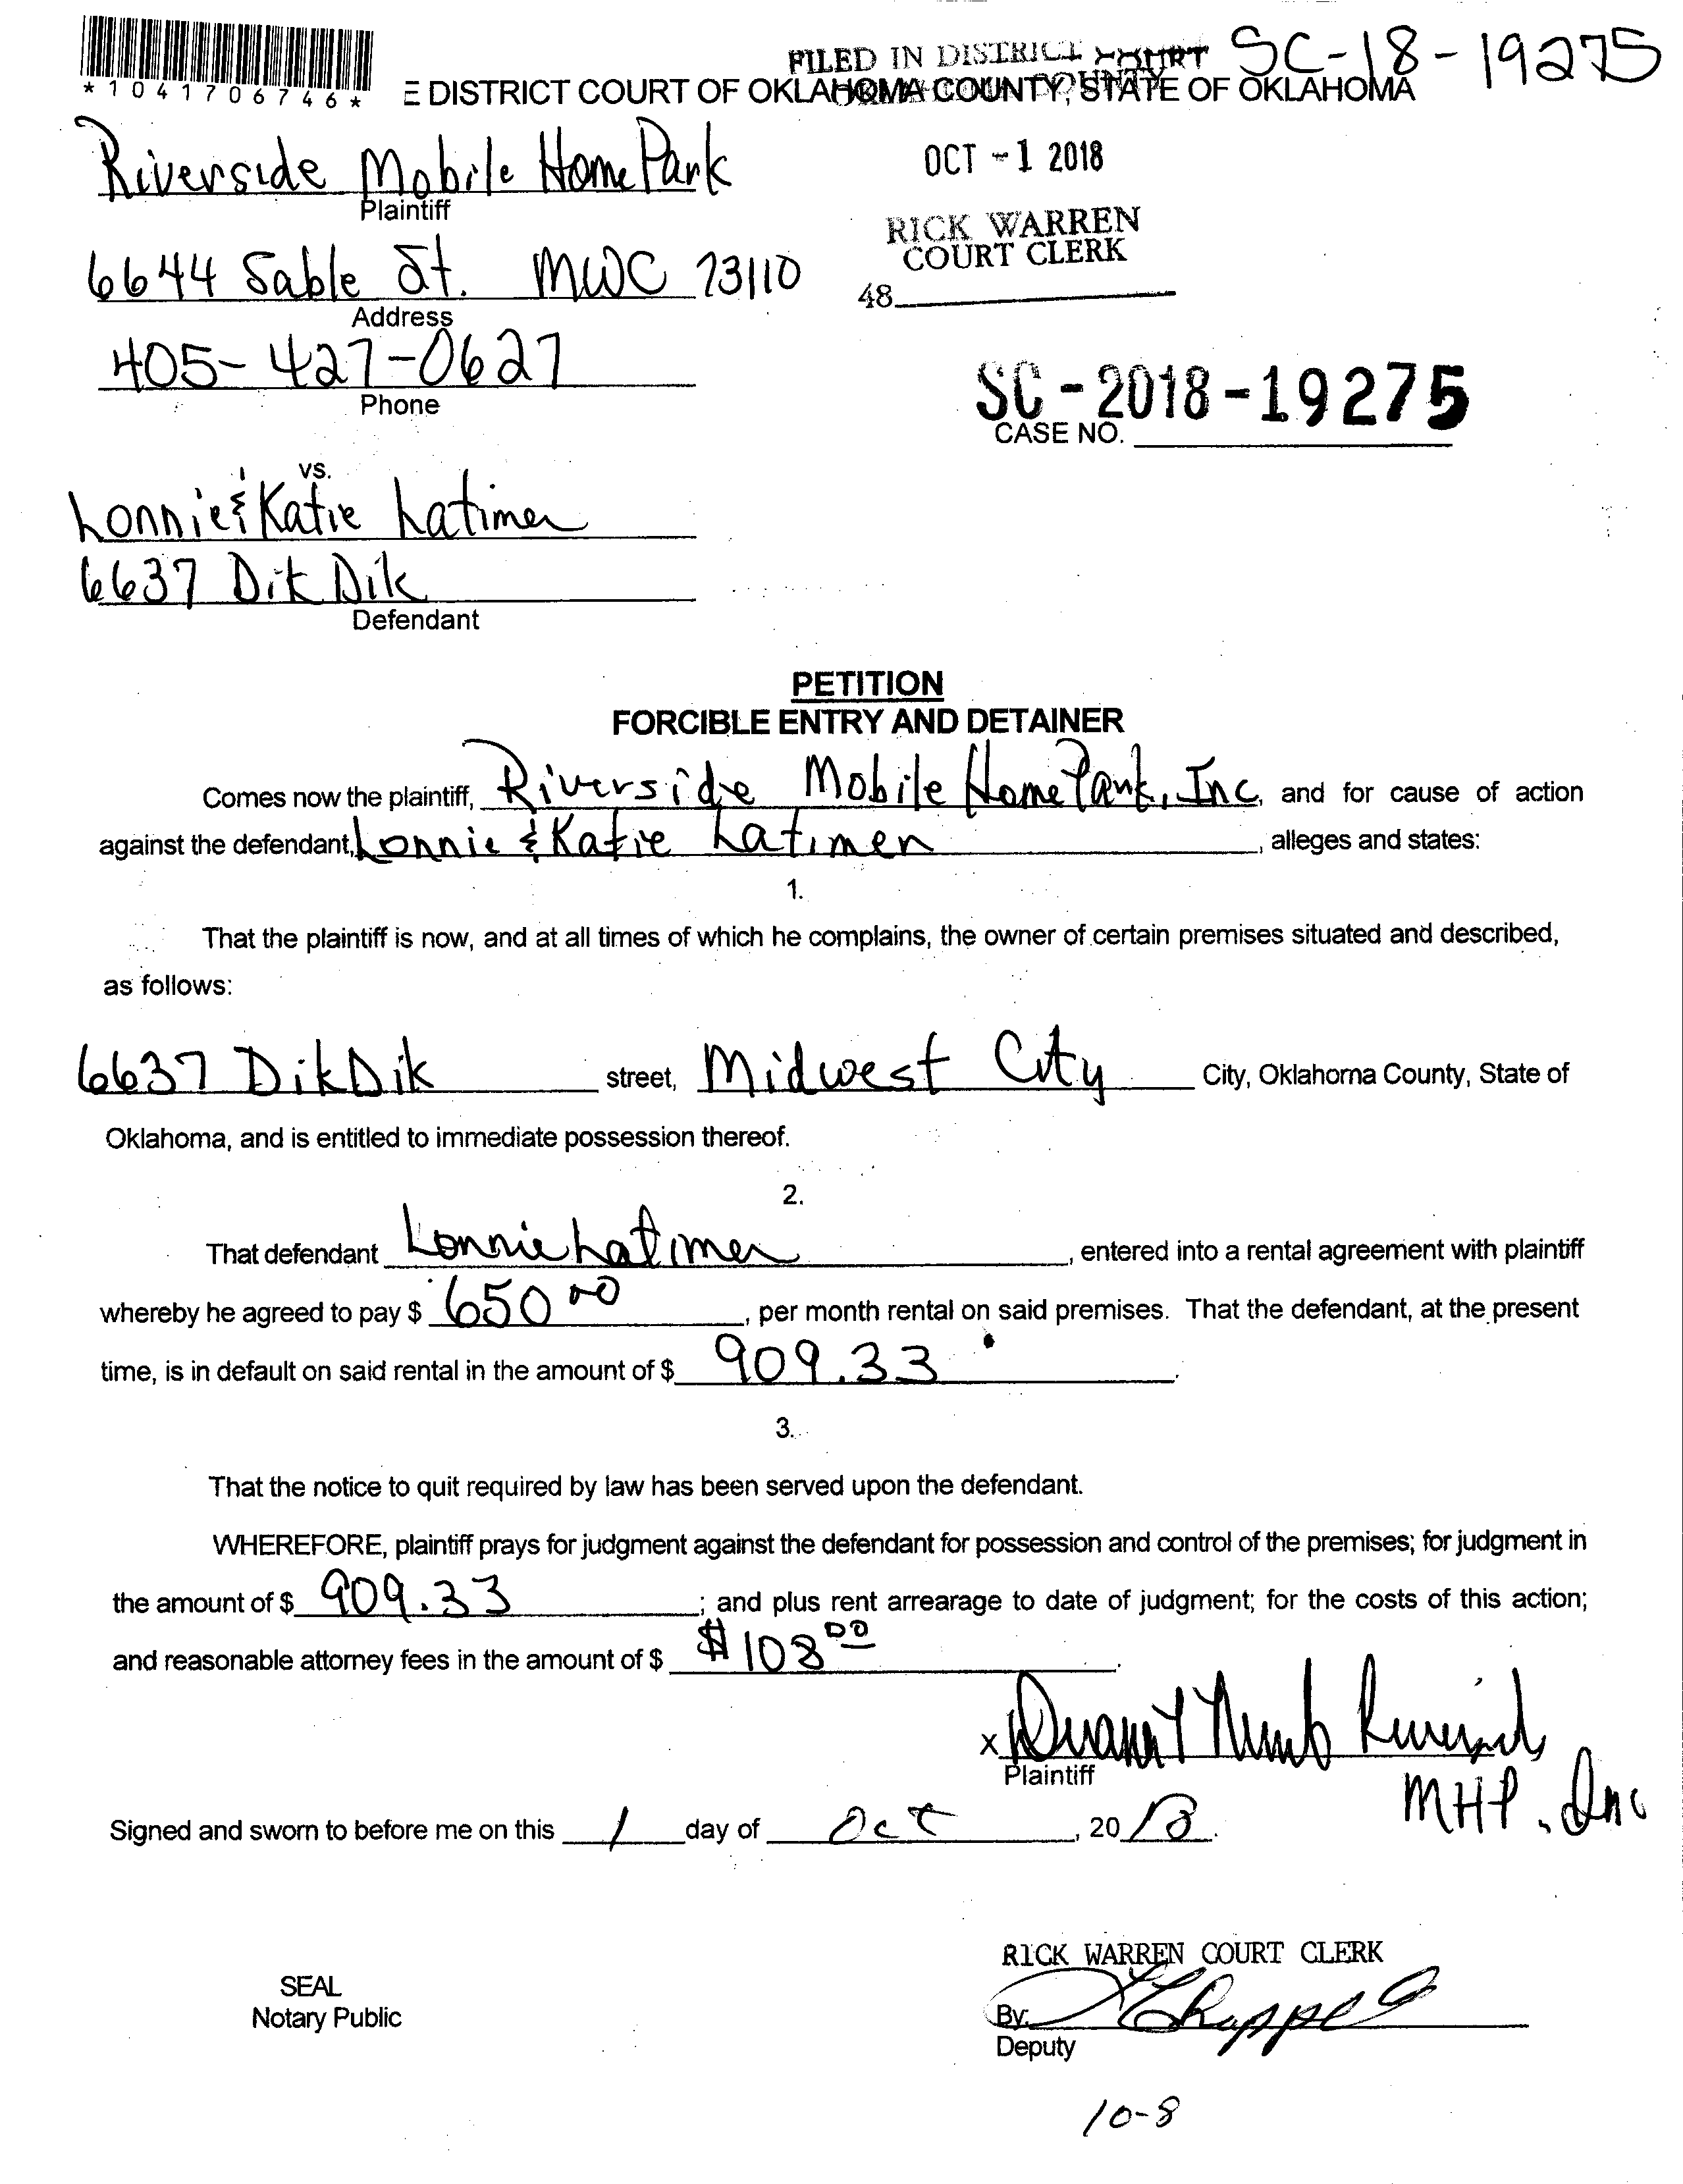 FILED IN DISTRICT COURT SC-18-19275
*1041706746*
E DISTRICT COURT OF OKLAHOMA COUNTY, STATE OF OKLAHOMA
Riverside Mobile Home Park
Plaintiff
OCT -1 2018
RICK WARREN
COURT CLERK
6644 Sable St. MWC 73110
Address
48
405-427-0627
Phone
SC-2018-19275
CASE NO.
vs.
Lonnie & Katie Latimer
6637 Dik Dik
Defendant
PETITION
FORCIBLE ENTRY AND DETAINER
Comes now the plaintiff, Riverside Mobile Home Park, Inc, and for cause of action
against the defendant, Lonnie & Katie Latimer, alleges and states:
1.
That the plaintiff is now, and at all times of which he complains, the owner of certain premises situated and described,
as follows:
6637 DikDik street, Midwest City City, Oklahoma County, State of
Oklahoma, and is entitled to immediate possession thereof.
2.
That defendant Lonnie Latimer, entered into a rental agreement with plaintiff
whereby he agreed to pay $ 650 00, per month rental on said premises. That the defendant, at the present
time, is in default on said rental in the amount of $ 909.33.
3.
That the notice to quit required by law has been served upon the defendant.
WHEREFORE, plaintiff prays for judgment against the defendant for possession and control of the premises; for judgment in
the amount of $ 909.33; and plus rent arrearage to date of judgment; for the costs of this action;
and reasonable attorney fees in the amount of $ $108 00.
X
Plaintiff
MHP. Inc
Signed and sworn to before me on this 1 day of Oct, 20 18.
RICK WARREN COURT CLERK
SEAL
Notary Public
By:
Deputy
10-8